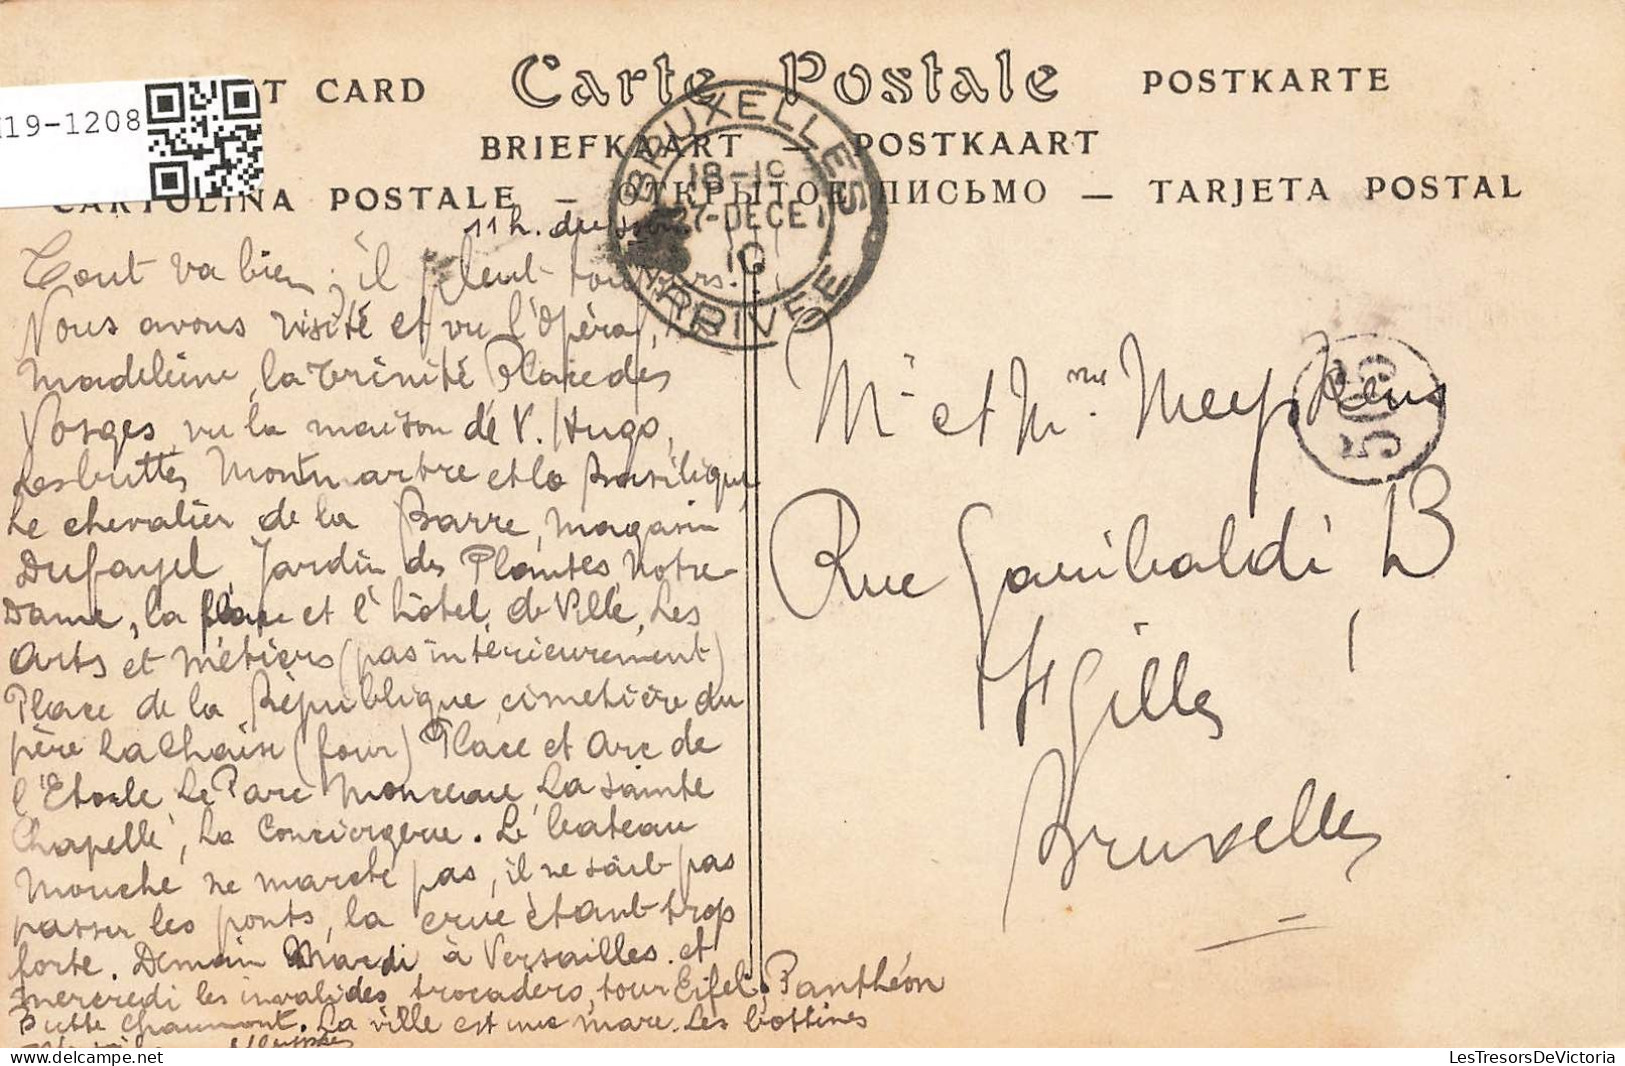 19-1208
T CARD Carte Postale POSTKARTE
BRIEFKAART — POSTKAART
CARTOLINA POSTALE — ОТКРЫТОЕ ПИСЬМО — TARJETA POSTAL
BRUXELLES
18-19
27-DECE
10
ARRIVEE
11 h. du soir
Tout va bien ; il pleut toujours.
Nous avons visité et vu l'Opéra,
Madeleine, la Trinité, Place des
Vosges, vu la maison de V. Hugo,
Les buttes Montmartre et la Basilique,
Le chevalier de la Barre, magasin
Dufayel, Jardin des Plantes, Notre-
Dame, la place et l'hôtel de Ville, Les
Arts et Métiers (pas intérieurement)
Place de la République, cimetière du
père La Chaise (four) Place et Arc de
l'Etoile Le Parc Monceau, La Sainte
Chapelle, La Conciergerie. Le bateau
Mouche ne marche pas, il ne sait pas
passer les ponts, la crue étant trop
forte. Demain Mardi à Versailles. et
mercredi les invalides, trocadero, tour Eifel, Panthéon
Butte Chaumont. La ville est une mare. Les bottines
Mr et Mme Meyskens
505
Rue Garibaldi 13
St Gilles
Bruxelles
LesTresorsDeVictoria.com